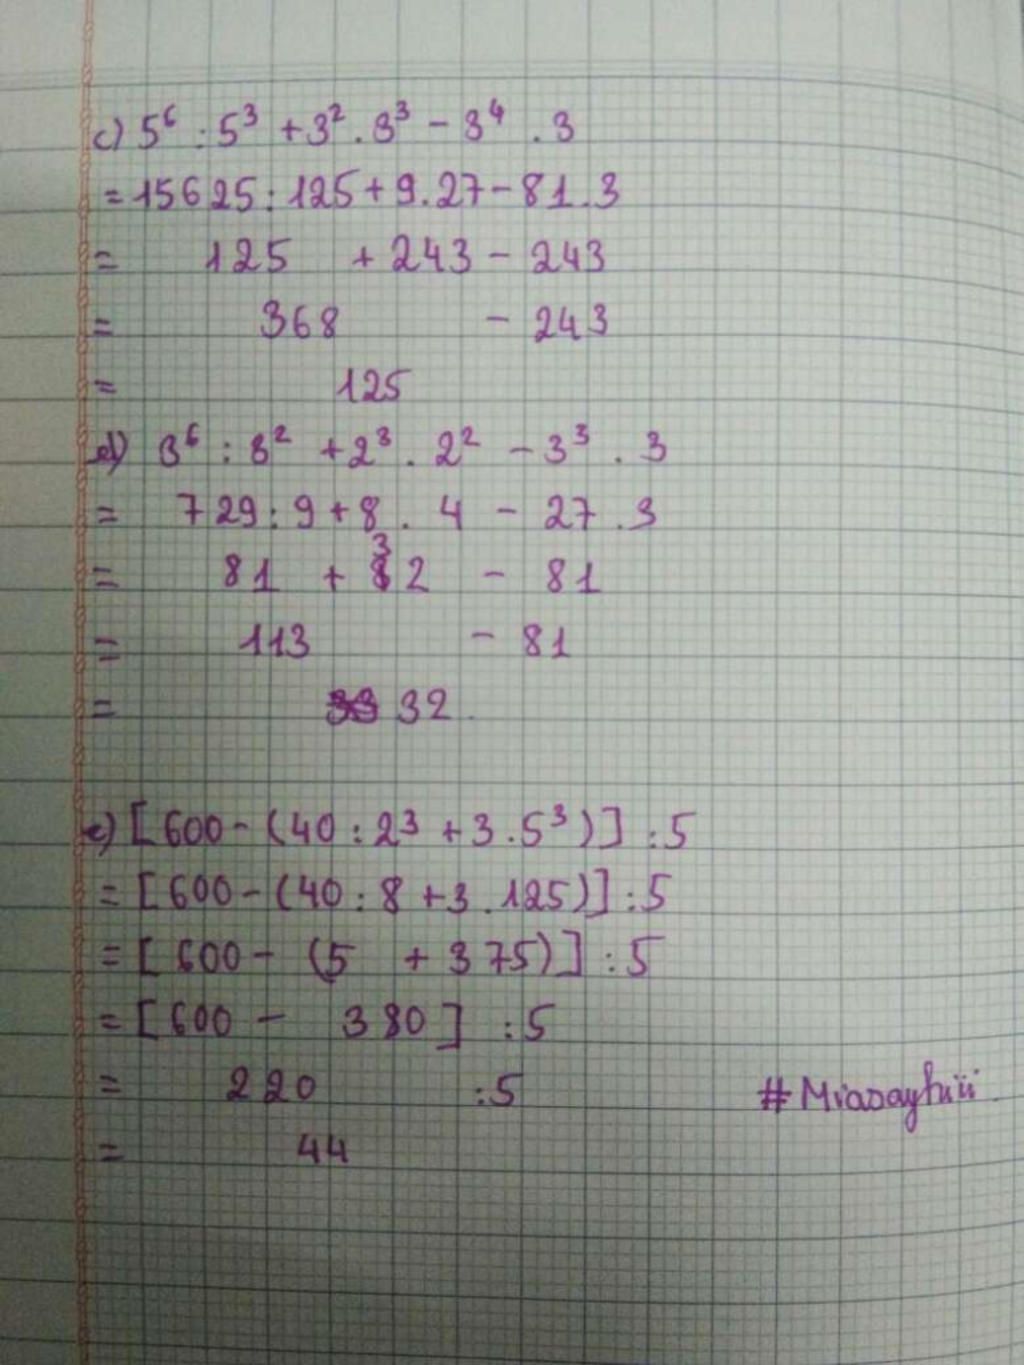 c) 5⁶ : 5³ + 3² . 3³ - 3⁴ . 3
= 15625 : 125 + 9 . 27 - 81 . 3
= 125 + 243 - 243
= 368 - 243
= 125
d) 3⁶ : 3² + 2³ . 2² - 3³ . 3
= 729 : 9 + 8 . 4 - 27 . 3
= 81 + 32 - 81
= 113 - 81
= 32.
e) [600 - (40 : 2³ + 3 . 5³)] : 5
= [600 - (40 : 8 + 3 . 125)] : 5
= [600 - (5 + 375)] : 5
= [600 - 380] : 5
= 220 : 5
= 44